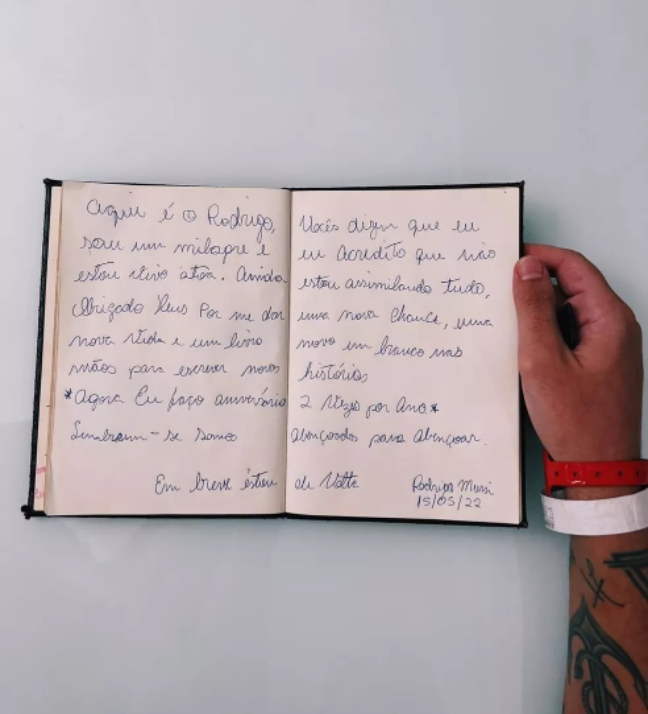 Aqui é o Rodrigo, Vocês dizem que eu
sou um milagre e eu acredito que não
estou vivo atoa. Ainda estou assimilando tudo,
Obrigado Deus Por me dar uma nova chance, uma
nova vida e um livro novo em branco nas
mãos para escrever novas histórias
*Agora Eu faço aniversário 2 Vezes por Ano*
Lembrem-se somos abençoados para abençoar.
Em breve estou de Volta Rodrigo Mussi
15/05/22